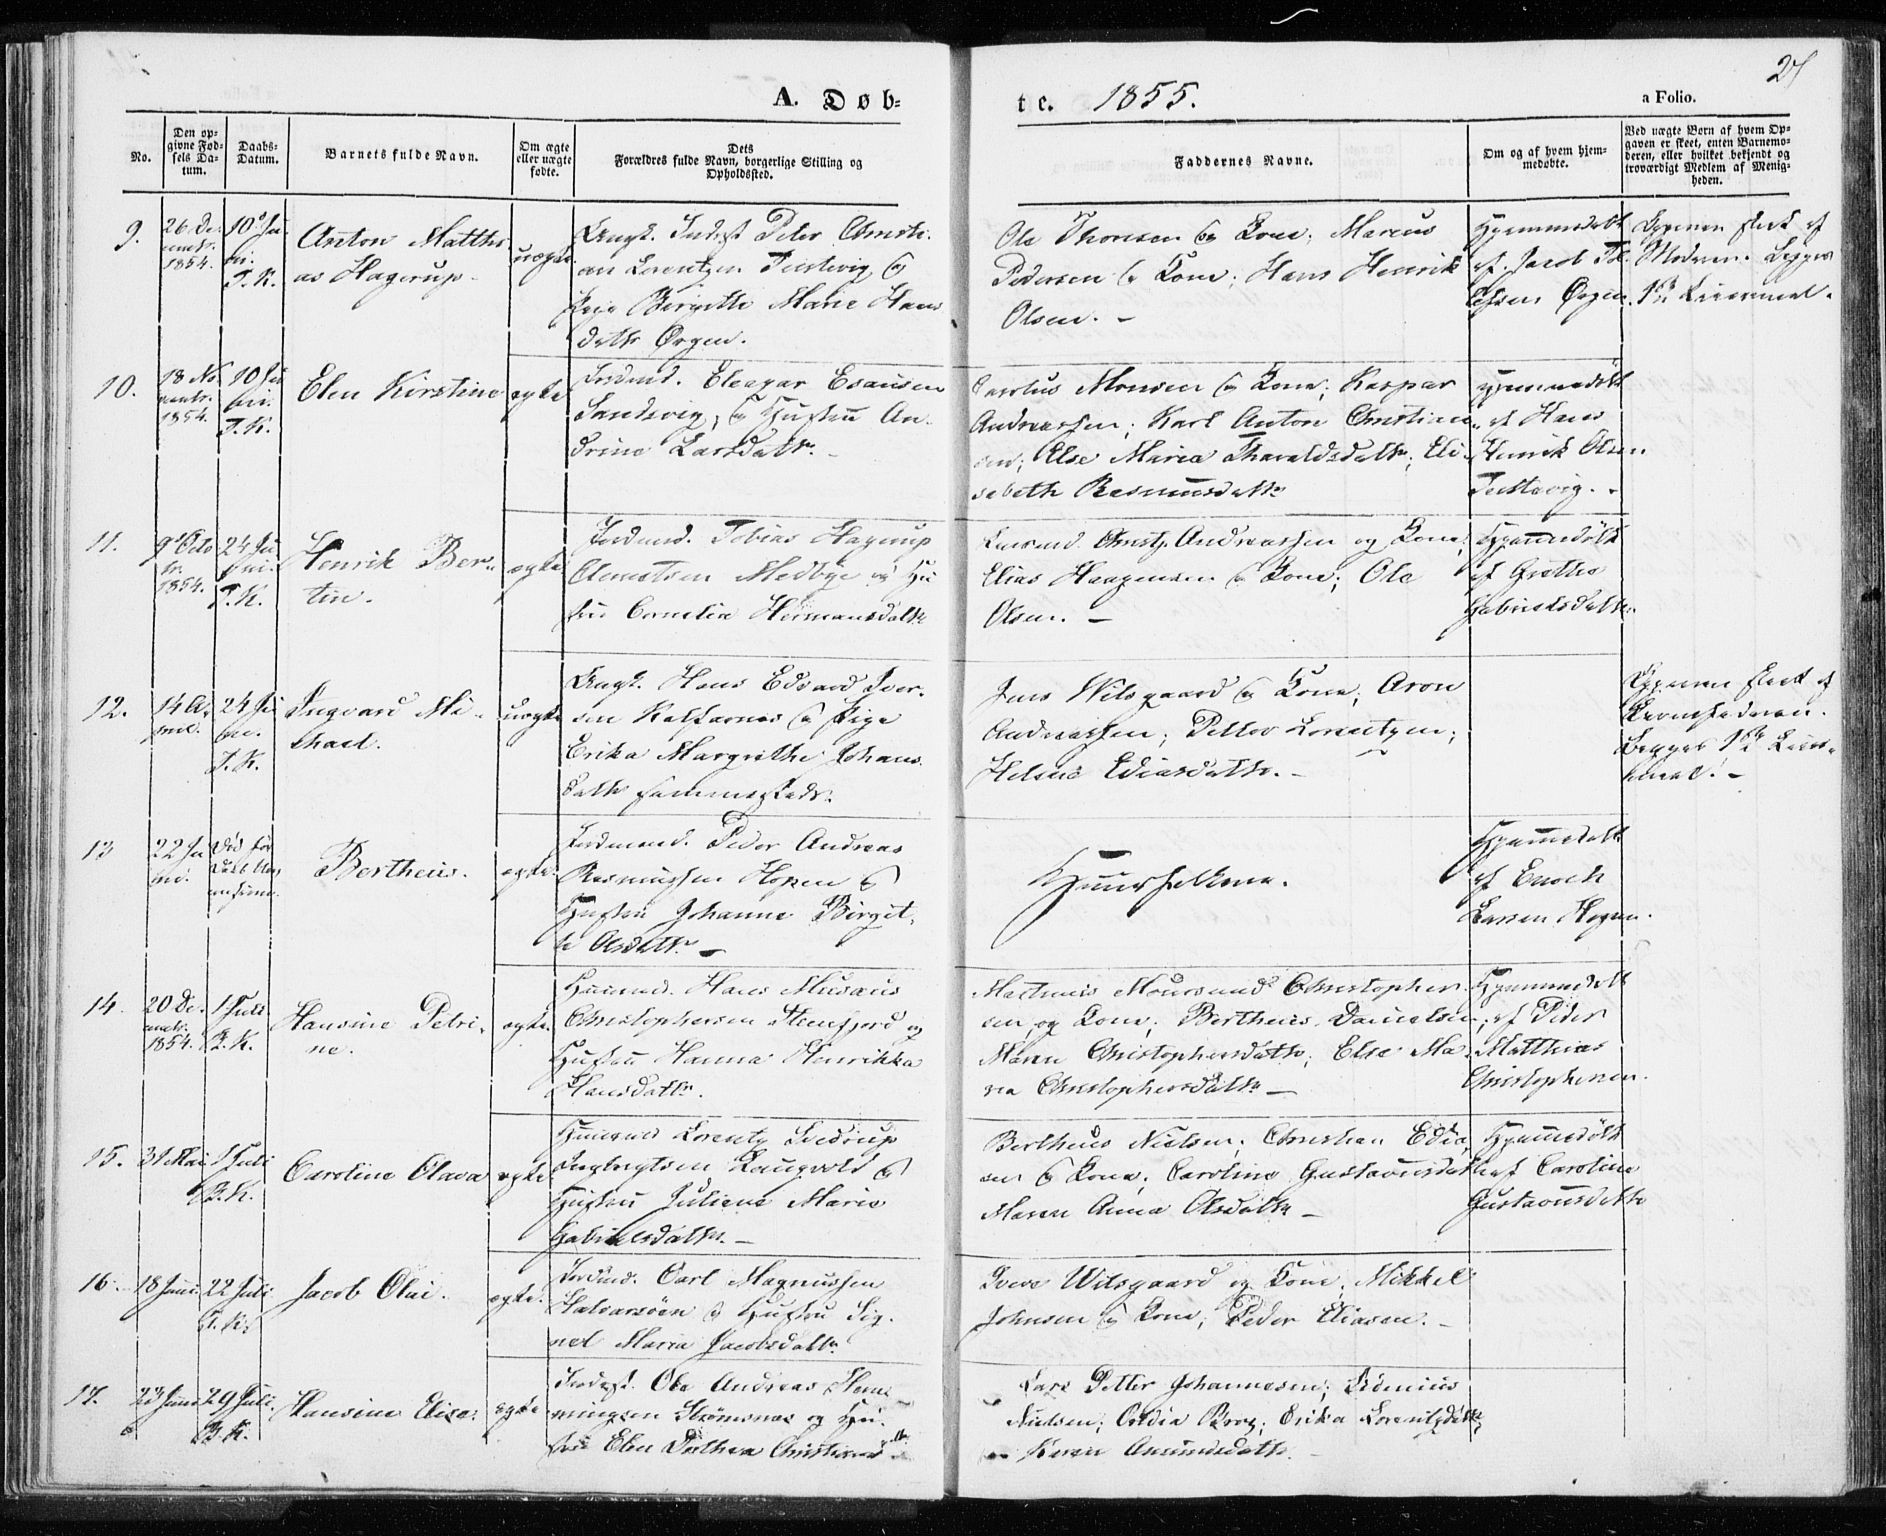 27
A. Døb-
te. 1855.
a Folio.
No.
Den op-
givne Fød-
sels Da-
tum.
Daabs-
Datum.
Barnets fulde Navn.
Om ægte
eller uægte
fødte.
Dets
Forældres fulde Navn, borgerlige Stilling og
Opholdssted.
Faddernes Navne.
Om og af hvem hjem-
medøbte.
Ved uægte Børn af hvem Op-
gaven er skeet, enten Barnemo-
deren, eller hvilket bekjendt og
troværdigt Medlem af Menig-
heden.
9.
26 De-
cembr.
1854.
10 Ju-
ni.
T. K.
Anton Matthi-
as Hagerup.
uægte
Ungk. Indst Peter Christi-
an Lorentzen Teistevig og
Pige Birgitte Marie Hans
datter Øxgen.
Ole Thoresen og Kone; Marcus
Pedersen og Kone; Hans Henrik
Olsen. -
Hjemmedøbt
af Jacob
Øxgen.
skeet af
Moderen. Begges
1ste Leiermaal.
10.
18 No-
vembr.
1854.
10 Ju-
ni.
T. K.
Elen Kirstine
ægte
Jordmd. Eleazar Esausen
Sandvig, og Hustru An-
drine Larsdatter. -
Carolus Monsen og Kone; Kaspar
Andreassen; Karl Anton Christian-
sen; Else Maria Tharaldsdatter; Eli-
sabeth Rasmusdatter
Hjemmedøbt
af Hans
Henrik Olsen
Teistevig. -
11.
9 Octo
br.
1854.
24 Ju
ni.
T. K.
Henrik Ber-
tin.
ægte
Jordmd. Tobias Hagerup
Clemetsen Medbye og Hu
stru Cornelia Heimansdatter
Christ. Andreassen og Kone;
Elias Haagensen og Kone; Ole
Olsen. -
Hjemmedøbt
af Grethe
Gabrielsdatter.
12.
14 A-
pril.
24 Ju
ni.
T. K.
Ingvard Mi-
chael.
uægte
Ungk. Hans Edvard Iver-
sen Kalfarnes og Pige
Erika Margrethe Johans
datter sammesteds.
Jens Wilsgaard og Kone; Aron
Andreassen; Petter Lorentzen;
Helene Ediasdatter. -
skeet af
Barnefaderen.
Begges 1ste Leier-
maal. -
13
22 Ju
ni.
Død før
Bertheus.
ægte.
Jordmand. Peder Andreas
Rasmussen Hopen og
Hustru Johanna Birgit-
te Olsdatter. -
Huusfolkene.
Hjemmedøbt
af Enoch
Larsen Hopen.
14.
20 De-
cmbr.
1854.
1 Juli
B. K.
Hansine Petri-
ne.
ægte.
Huusmd. Hans Musæus
Christophersen Steenfjord og
Hustru Hanna Henrikka
Hansdatter.
Mathias Moursund Christopher-
sen og Kone; Bertheus Danielsen;
Maren Christophersdatter; Else Ma-
ria Christophersdatter -
Hjemmedøbt
af Peder
Matthias
Christophersen.
15.
31 Mai
1 Juli
B. K.
Caroline Olava
ægte.
Huusmd Lorentz Sverdrup
Ingbrigtsen Laugvold og
Hustru Juliane Marie
Gabrielsdatter. -
Bertheus Nielsen; Christian Edia-
sen og Kone; Caroline Gustavusdatter
Maren Anna Olsdatter -
Hjemmedøbt
af Caroline
Gustavusdatter
16.
18 Juni
22 Juli
T. K.
Jacob Olai.
ægte.
Jordmd. Carl Magnussen
Halvarsøen og Hustru Sig-
nel Maria Jacobsdatter
Iver Wilsgaard og Kone; Mikkel
Johnsen og Kone; Peder Eliasen. -
17.
23 Juni
29 Juli
B. K.
Hansine Elise.
ægte
Indst. Ole Andreas Hem-
mingsen Strømsnes og Hu-
stru Elen Dorthea Christians
Lars Petter Johannesen;
Nielsen; Erika Lorentzdatter
Karen Amundsdatter.